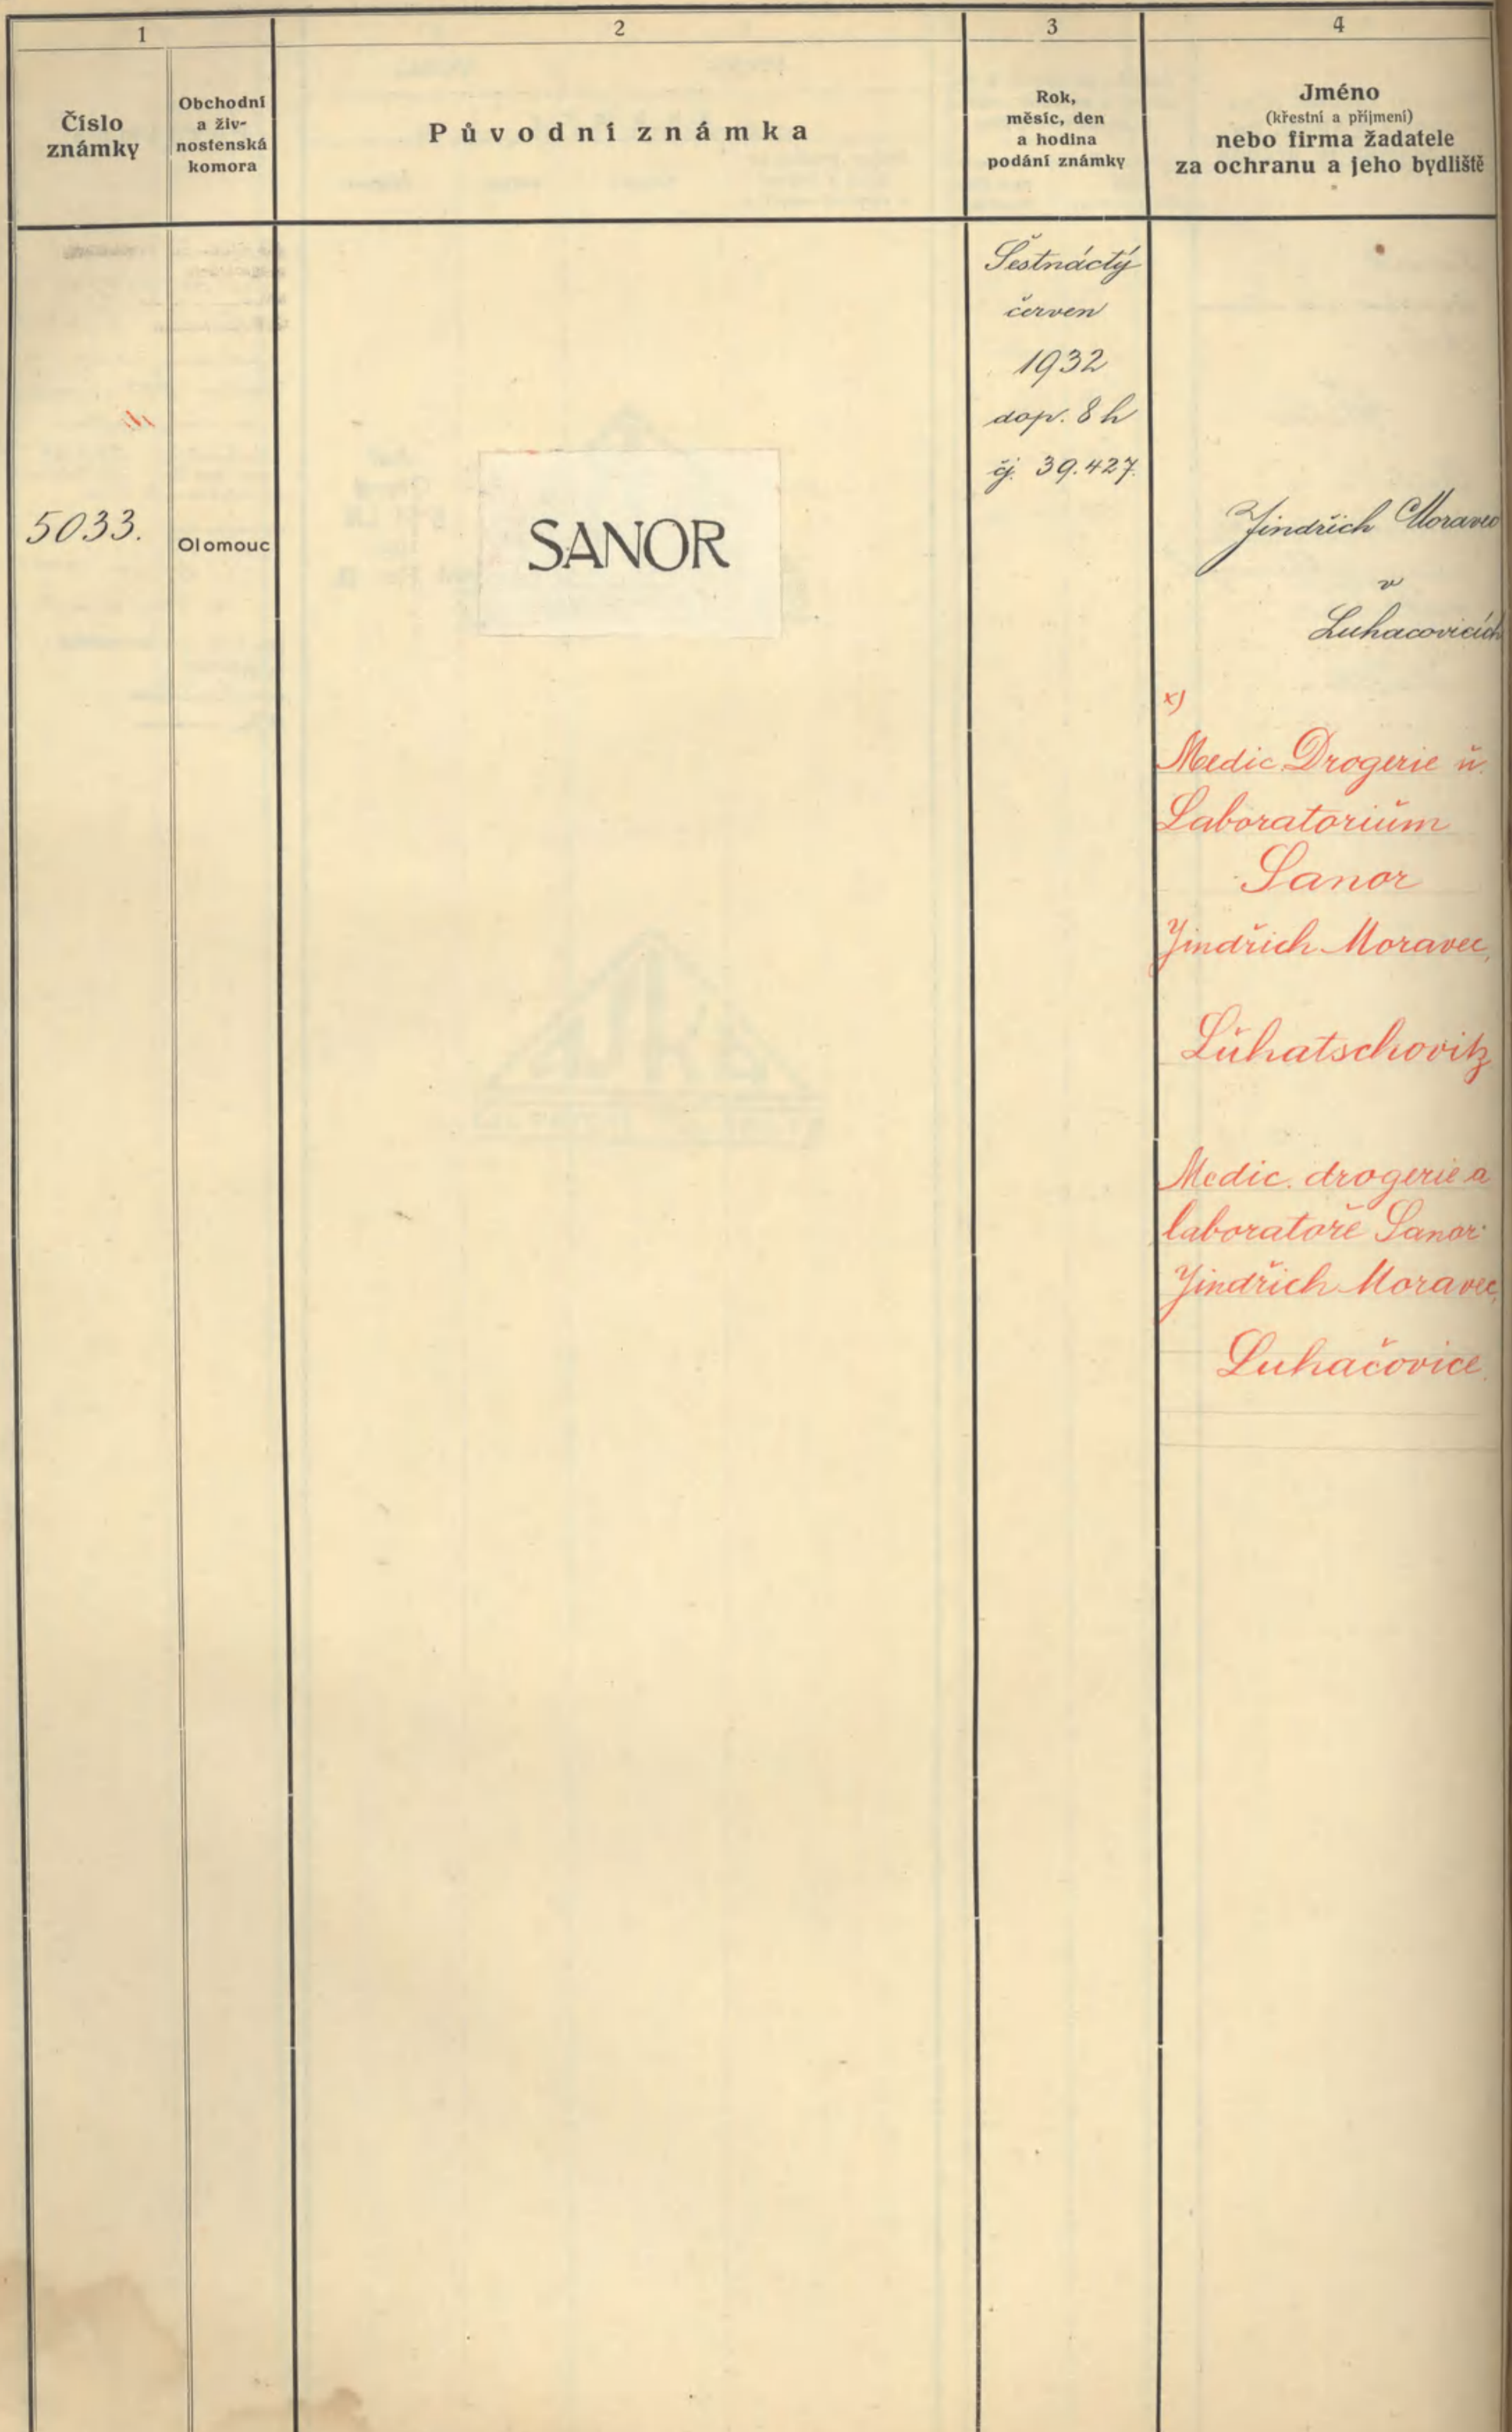 1
2
3
4
Číslo
známky
Obchodní
a živ-
nostenská
komora
Původní známka
Rok,
měsíc, den
a hodina
podání známky
Jméno
(křestní a příjmení)
nebo firma žadatele
za ochranu a jeho bydliště
5033.
Olomouc
SANOR
Šestnáctý
červen
1932
dop. 8 h
čj. 39.427.
Jindřich Moravec
v
Luhacovicích
x)
Medic. Drogerie ŭ.
Laboratoriŭm
Sanor
Jindřich Moravec,
Lŭhatschovitz
Medic. drogerie a
laboratoře Sanor
Jindřich Moravec,
Luhačovice.